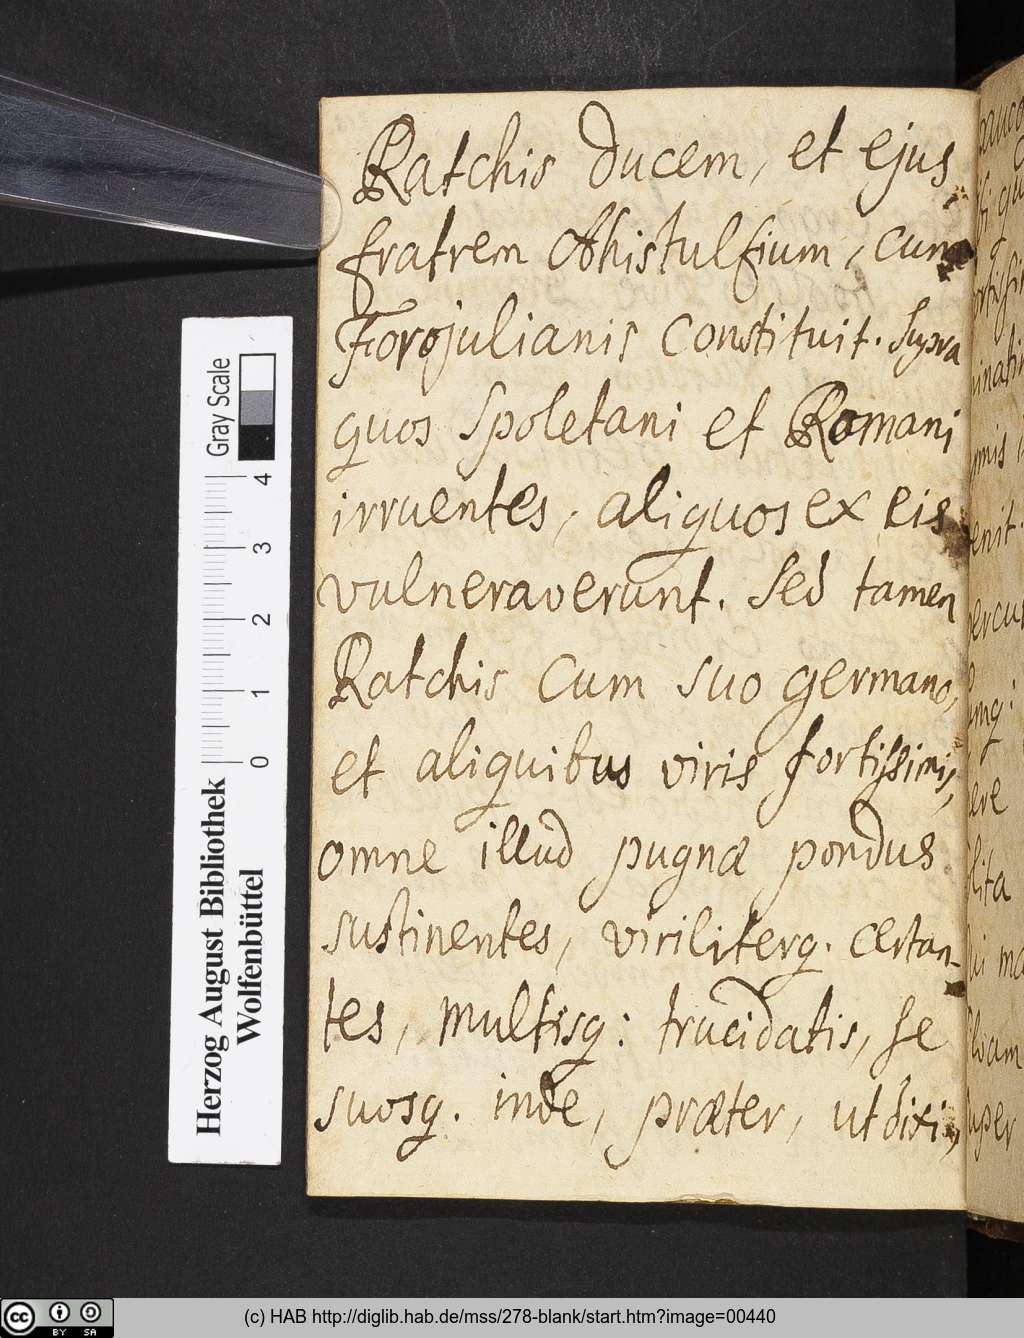 Ratchis ducem, et ejus
fratrem Ahistulfium, cum
Forojulianis constituit. Supra
quos Spoletani et Romani
irruentes, aliquos ex eis
vulneraverunt. Sed tamen
Ratchis cum suo germano,
et aliquibus viris fortissimis,
omne illud pugnæ pondus
sustinentes, viriliterq. certan-
tes, multisq: trucidatis, se
suosq. inde, præter, ut dixi,
Gray Scale
0 1 2 3 4
Herzog August Bibliothek
Wolfenbüttel
enit
ere
lita
uper
cc BY SA
(c) HAB http://diglib.hab.de/mss/278-blank/start.htm?image=00440